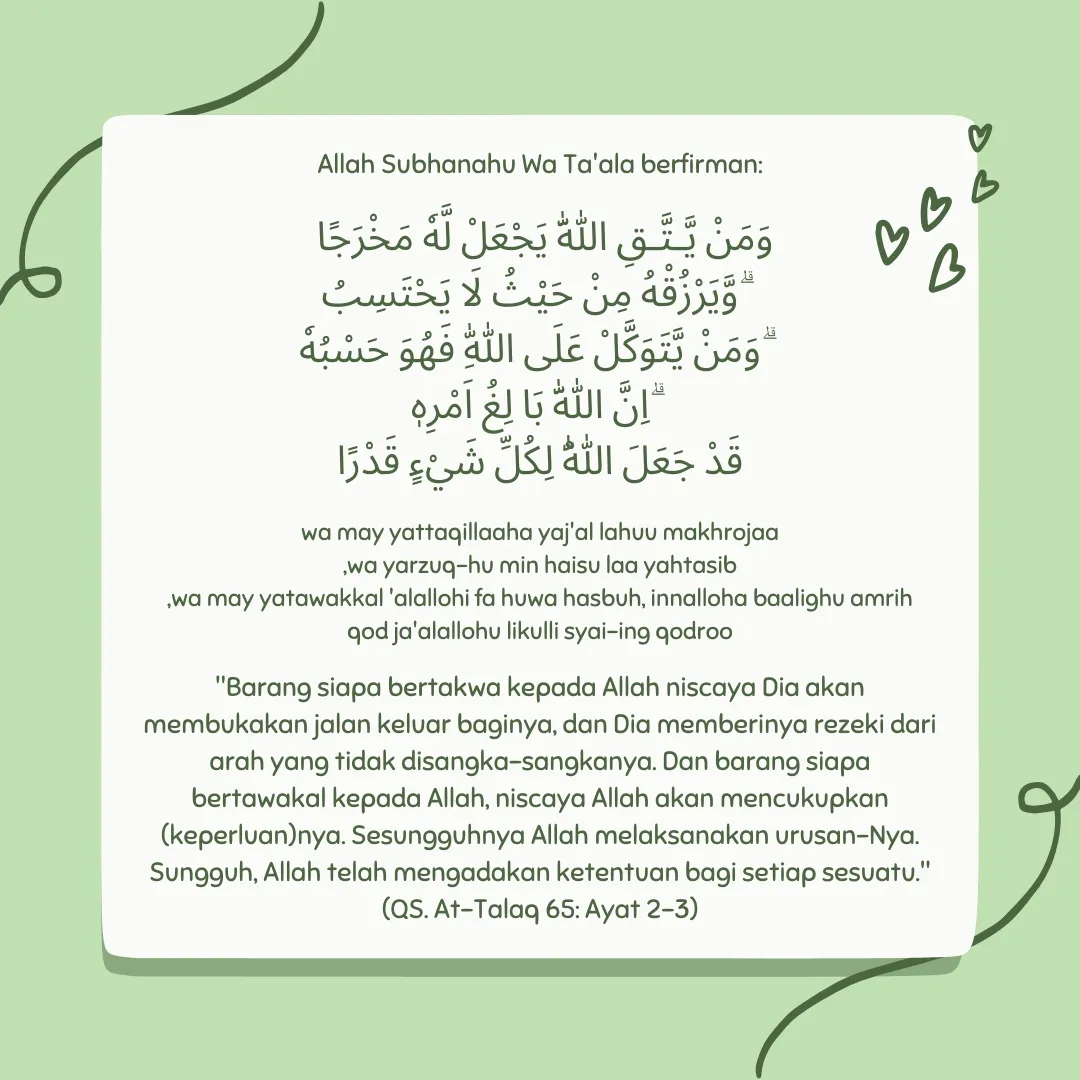 Allah Subhanahu Wa Ta'ala berfirman:
وَمَنْ يَّـتَّـقِ اللّٰهَ يَجْعَلْ لَّهٗ مَخْرَجًا
ۗوَّيَرْزُقْهُ مِنْ حَيْثُ لَا يَحْتَسِبُ
ۗوَمَنْ يَّتَوَكَّلْ عَلَى اللّٰهِ فَهُوَ حَسْبُهٗ
ۗاِنَّ اللّٰهَ بَا لِغُ اَمْرِهٖ
قَدْ جَعَلَ اللّٰهُ لِكُلِّ شَيْءٍ قَدْرًا
wa may yattaqillaaha yaj'al lahuu makhrojaa
,wa yarzuq-hu min haisu laa yahtasib
,wa may yatawakkal 'alallohi fa huwa hasbuh, innalloha baalighu amrih
qod ja'alallohu likulli syai-ing qodroo
"Barang siapa bertakwa kepada Allah niscaya Dia akan
membukakan jalan keluar baginya, dan Dia memberinya rezeki dari
arah yang tidak disangka-sangkanya. Dan barang siapa
bertawakal kepada Allah, niscaya Allah akan mencukupkan
(keperluan)nya. Sesungguhnya Allah melaksanakan urusan-Nya.
Sungguh, Allah telah mengadakan ketentuan bagi setiap sesuatu."
(QS. At-Talaq 65: Ayat 2-3)